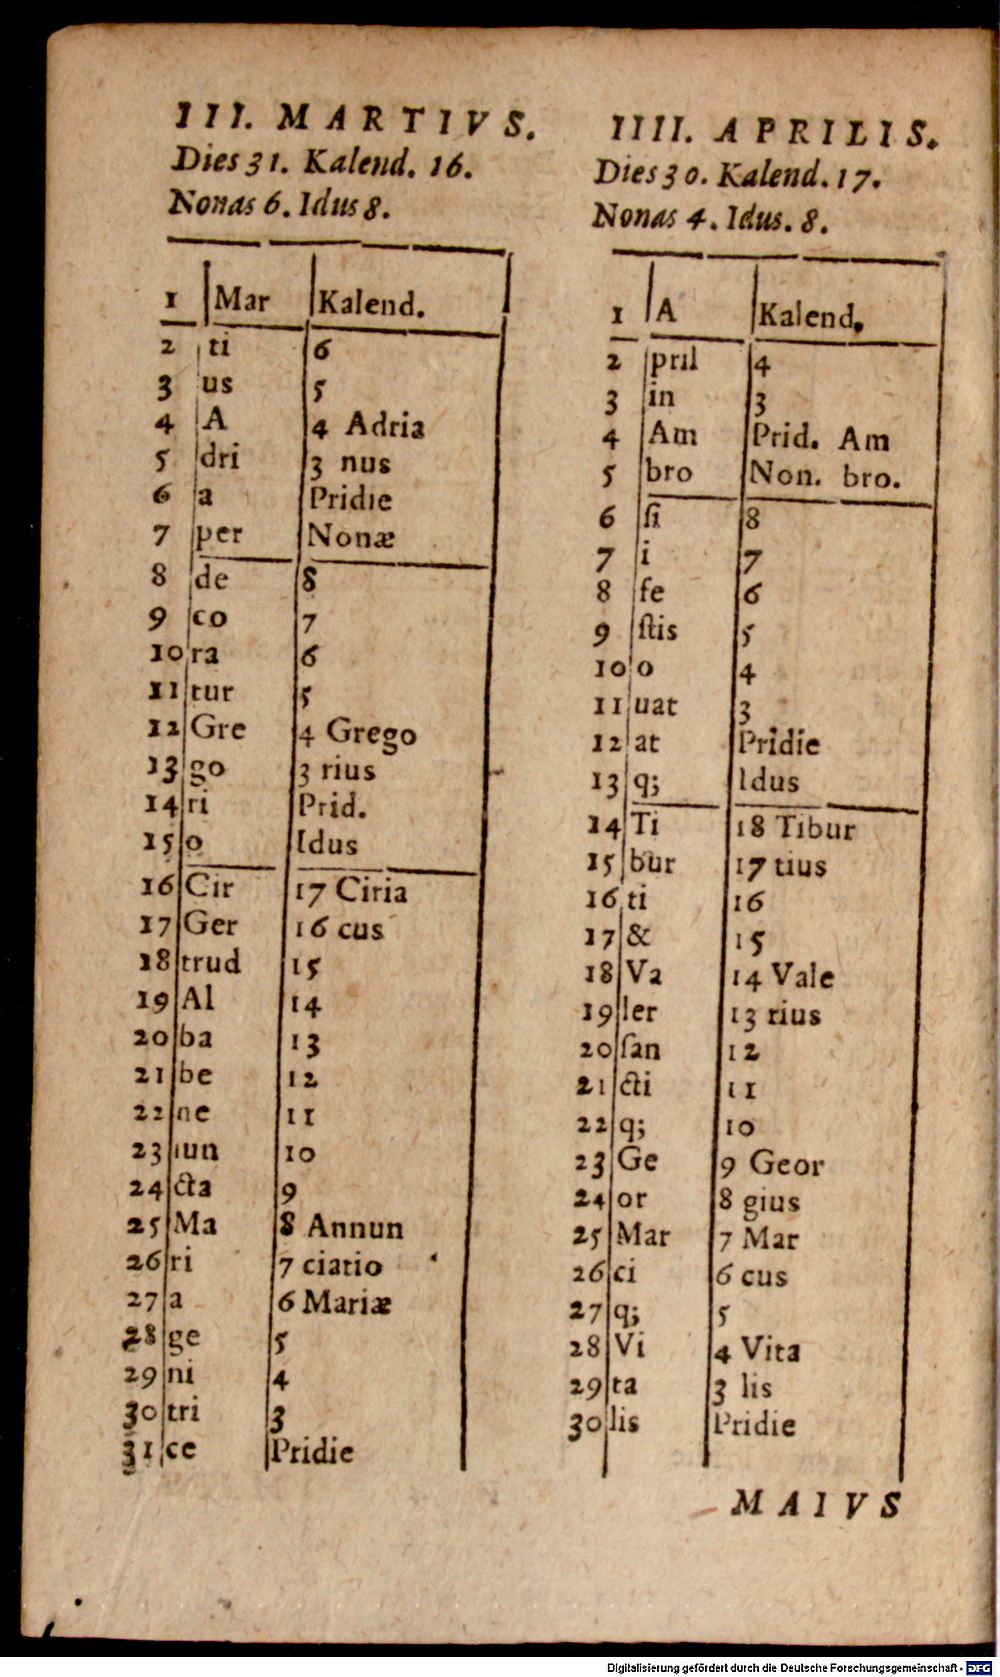 III. MARTIVS.
Dies 31. Kalend. 16.
Nonas 6. Idus 8.
1 Mar Kalend.
2 ti 6
3 us 5
4 A 4 Adria
5 dri 3 nus
6 a Pridie
7 per Nonæ
8 de 8
9 co 7
10 ra 6
11 tur 5
12 Gre 4 Grego
13 go 3 rius
14 ri Prid.
15 o Idus
16 Cir 17 Ciria
17 Ger 16 cus
18 trud 15
19 Al 14
20 ba 13
21 be 12
22 ne 11
23 iun 10
24 cta 9
25 Ma 8 Annun
26 ri 7 ciatio
27 a 6 Mariæ
28 ge 5
29 ni 4
30 tri 3
31 ce Pridie
IIII. APRILIS.
Dies 30. Kalend. 17.
Nonas 4. Idus. 8.
1 A Kalend.
2 pril 4
3 in 3
4 Am Prid. Am
5 bro Non. bro.
6 ſi 8
7 i 7
8 fe 6
9 ſtis 5
10 o 4
11 uat 3
12 at Pridie
13 q; Idus
14 Ti 18 Tibur
15 bur 17 tius
16 ti 16
17 & 15
18 Va 14 Vale
19 ler 13 rius
20 ſan 12
21 cti 11
22 q; 10
23 Ge 9 Geor
24 or 8 gius
25 Mar 7 Mar
26 ci 6 cus
27 q; 5
28 Vi 4 Vita
29 ta 3 lis
30 lis Pridie
MAIVS
Digitalisierung gefördert durch die Deutsche Forschungsgemeinschaft - DFG